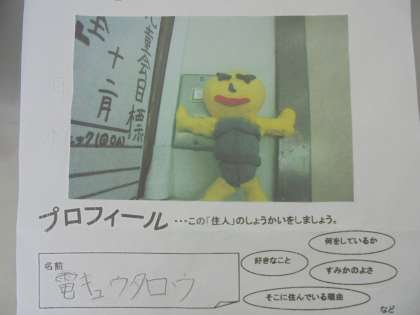 十二月
プロフィール …この「住人」のしょうかいをしましょう。
何をしているか
好きなこと
すみかのよさ
そこに住んでいる理由
など
名前
電キュウタロウ